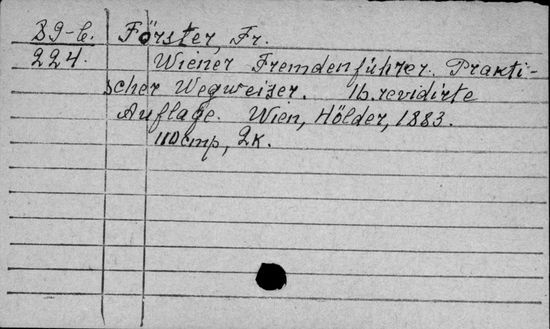 B9-b. Förster, Fr.
224. Wiener Fremdenführer. Prakti-
scher Wegweiser. 16. revidirte
Auflage. Wien, Hölder, 1883.
2 K.